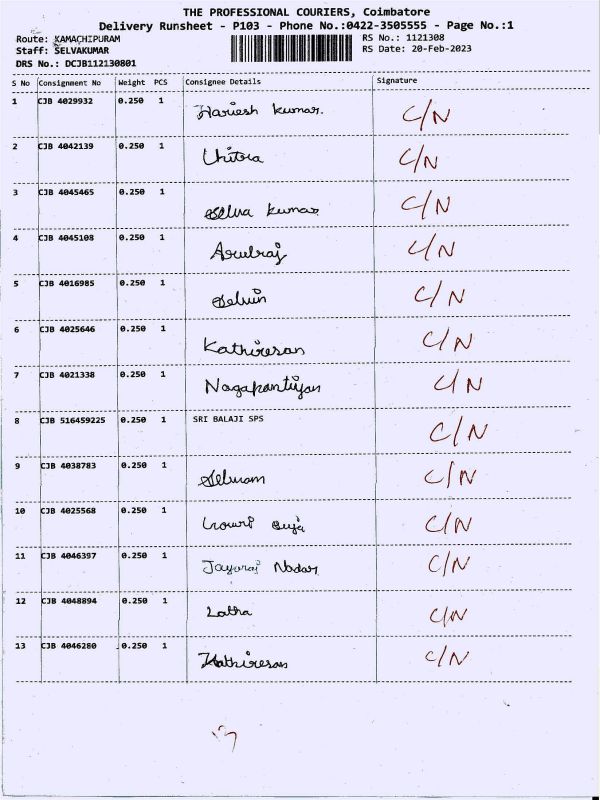 THE PROFESSIONAL COURIERS, Coimbatore
Delivery Runsheet - P103 - Phone No.:0422-3505555 - Page No.:1
Route: KAMACHIPURAM RS No.: 1121308
Staff: SELVAKUMAR RS Date: 20-Feb-2023
DRS No.: DCJB112130801
S No Consignment No Weight PCS Consignee Details Signature
1 CJB 4029932 0.250 1 Hariesh Kumar. C/N
2 CJB 4042139 0.250 1 Chitra C/N
3 CJB 4045465 0.250 1 Selva Kumar C/N
4 CJB 4045108 0.250 1 Arulraj C/N
5 CJB 4016985 0.250 1 Selvin C/N
6 CJB 4025646 0.250 1 Kathiresan C/N
7 CJB 4021338 0.250 1 Nagapandiyan C/N
8 CJB 516459225 0.250 1 SRI BALAJI SPS C/N
9 CJB 4038783 0.250 1 Selvam C/N
10 CJB 4025568 0.250 1 Gowri C/N
11 CJB 4046397 0.250 1 Jayaraj Nadar C/N
12 CJB 4048894 0.250 1 Latha C/N
13 CJB 4046280 0.250 1 Kathiresan C/N